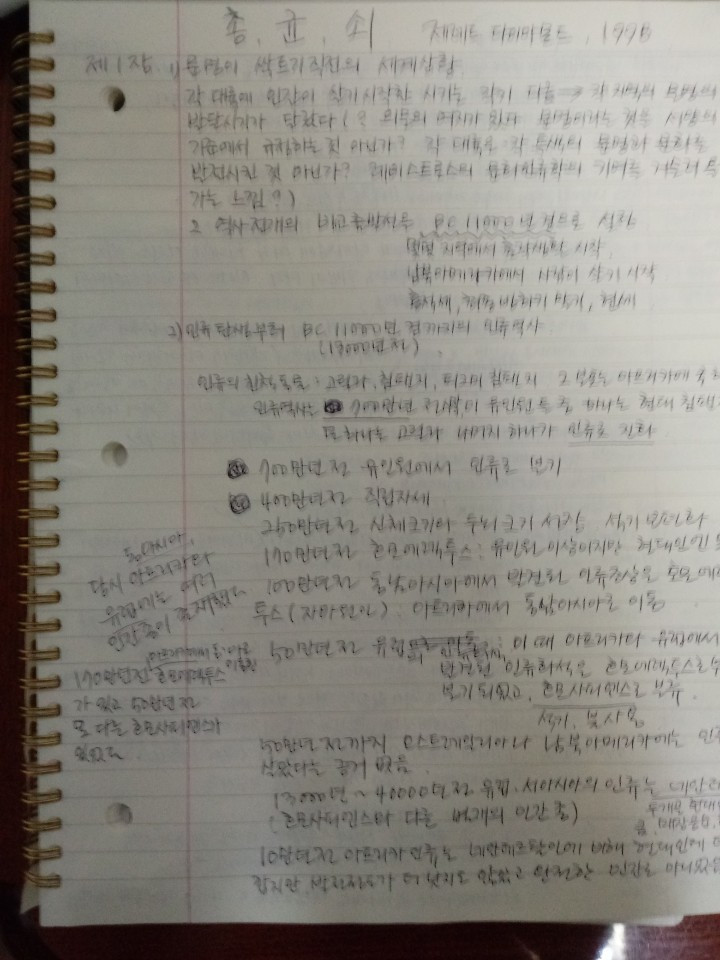 총, 균, 쇠 제레드 다이아몬드, 1998
제1장 1) 문명이 싹트기 직전의 세계상황
각 대륙에 인간이 살기 시작한 시기는 각기 다름 → 각 지역의 문명의
발달시기가 달랐다 (? 의문의 여지가 있다 문명이라는 것을 서양의
기준에서 규정하는 것 아닌가? 각 대륙은 각 특색의 문명과 문화를
발전시킨 것 아닌가? 레비스트로스의 문화인류학의
가는 느낌?)
2 역사 전개의 비교 출발점은 BC 11000년 경으로 설정
몇몇 지역에서 촌락생활 시작,
남북아메리카에서 사람이 살기 시작
홍적세, 마지막 빙하기 말기, 현세
2) 인류 탄생부터 BC 11000년 경까지의 인류역사
(13000년전)
인류의 친척 동물: 고릴라, 침팬지, 피그미침팬지 그 분포는 아프리카에 국
인류역사는 700만년 유인원 중 하나는 현대 침팬
또 하나는 고릴라 나머지 하나가 인류로 진화
700만년 전 유인원에서 인류로 분기
400만년 전 직립자세
250만년 전 신체크기와 두뇌크기 석기 보편화
170만년 전 호모에렉투스: 유인원 이상이지만 현대인엔
100만년전 동남아시아에서 발견된 인류화석은 호모에렉
투스 (자바원인): 아프리카에서 동남아시아로 이동
동남아시아,
당시 아프리카와
유럽에는 여러
인간종이 존재했다
50만년 전 유럽 : 이 때 아프리카와 유럽에서
발견된 인류화석은 호모에렉투스로부
분기 되었고, 호모사피엔스로 분류
석기, 불 사용
170만년전 호모에렉투스
가 있고 50만년전
또 다른 호모사피엔스가
있었다.
50만년 전까지 오스트레일리아나 남북아메리카에는 인
살았다는 근거 없음.
13000년 ~ 40000년전 유럽·서아시아의 인류는 네안데
(호모사피엔스와 다른 별개의 인간 종)
10만년전 아프리카 인류는 네안데르탈인에 비해 현대인에
깝지만, 발전정도가 더 낫지도 않았고 완전한 인간도 아니었